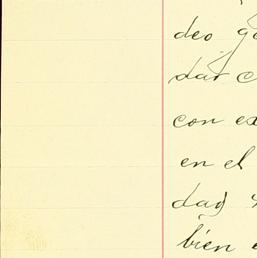 deo g
dar c
con ex
en el
dad
bien e